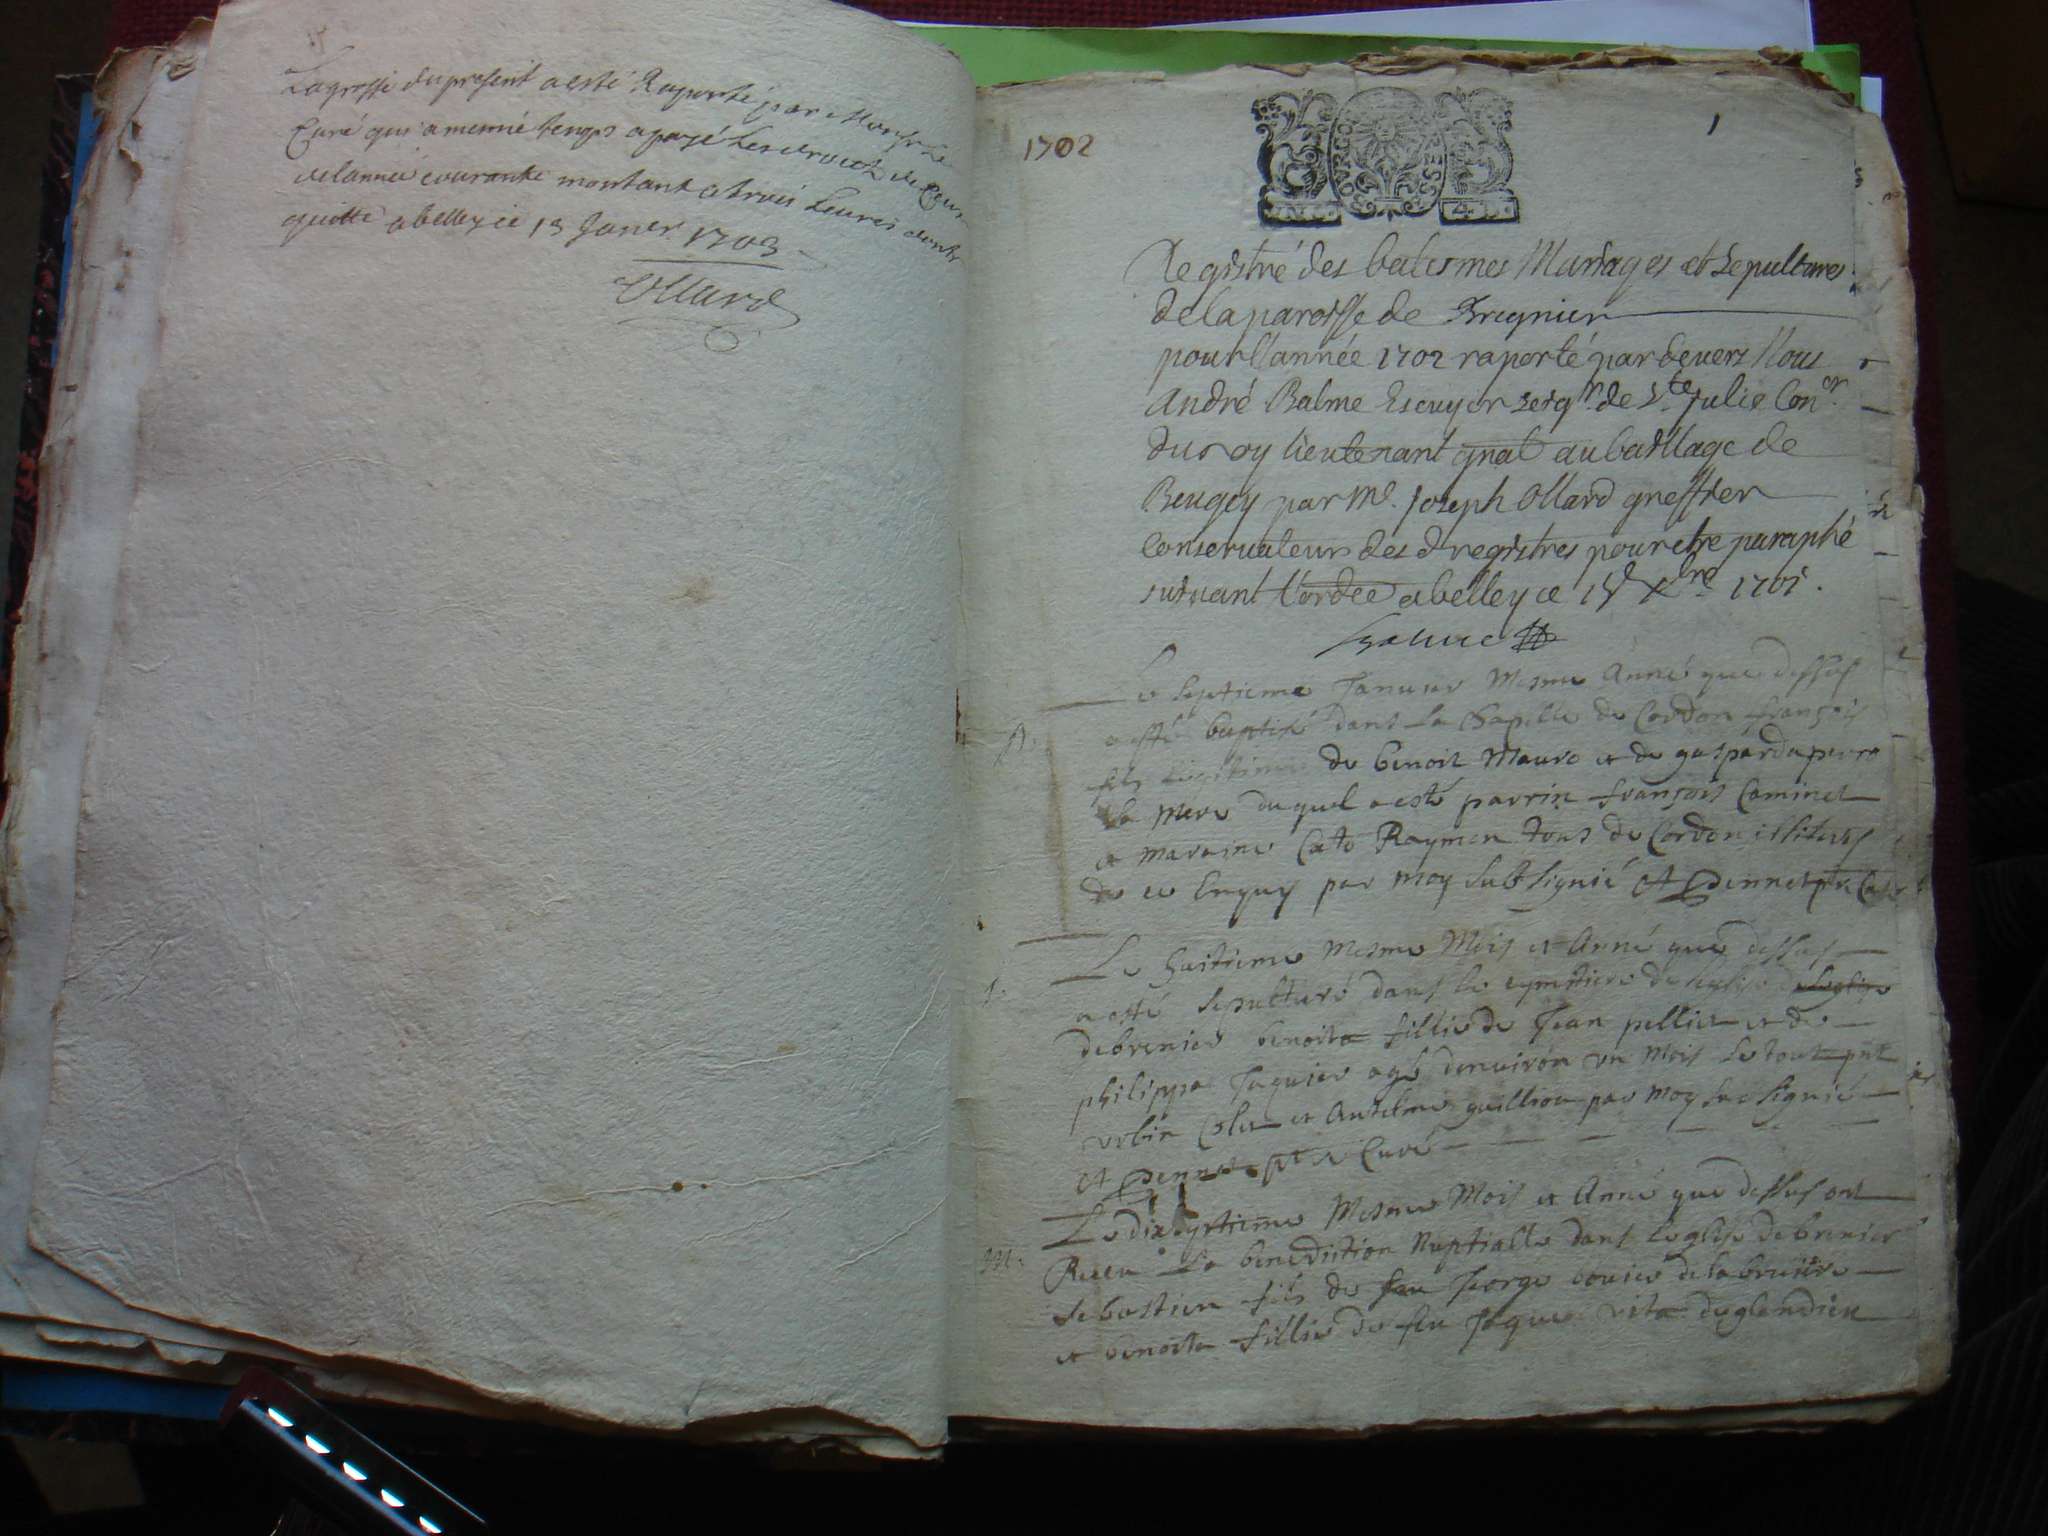 La grosse du present a esté Raporté par Monsr Le
Curé qui a mesme temps a payé Les droictz de
de lannée courante montant a trois Livres dont
quitte a belley ce 13 Janer 1703
Ollard
1702
1
BOURGOG
BRESSE
Registre des batesmes Mariages et Sepultures
de la paroisse de Bregnier
pour l'année 1702 raporté par devers Nous
André Balme Escuyer seigr. de Ste Julie Coner
du roy lieutenant gnal au baillage de
Beugey par Me. Joseph Ollard greffier
Conservateur des d registres pour etre paraphé
suivant l'ordce a belley ce 1701.
Balme
Le septieme Janvier Mesme Année que dessus
B.
a esté baptisé dans La Chapelle de Cordon françois
fils legitime de benoit Maure et de gasparda perra
La Mere duquel a esté parrin françois Caminet
et maraine Cate Raymon tous de Cordon
de ce par moy subsigné Dennet
Le huitieme Mesme Mois et Année que dessus
a esté sepulturé dans le cymitiere de
de brenier benoita fillie de Jean pellier et de
philippa Jaquier agé denviron un Mois Le tout pnt
urbin Colet et Antelme guillion par Moy subsigné
Dennet Curé
Le dix septieme Mesme Mois et Anné que dessus ont
M.
Receu La benediction Nuptialle dans Leglise de brenier
sebastien fils de feu Jeorge bovier de la bruiere
et benoita fillie de feu Jaque vita de glandieu